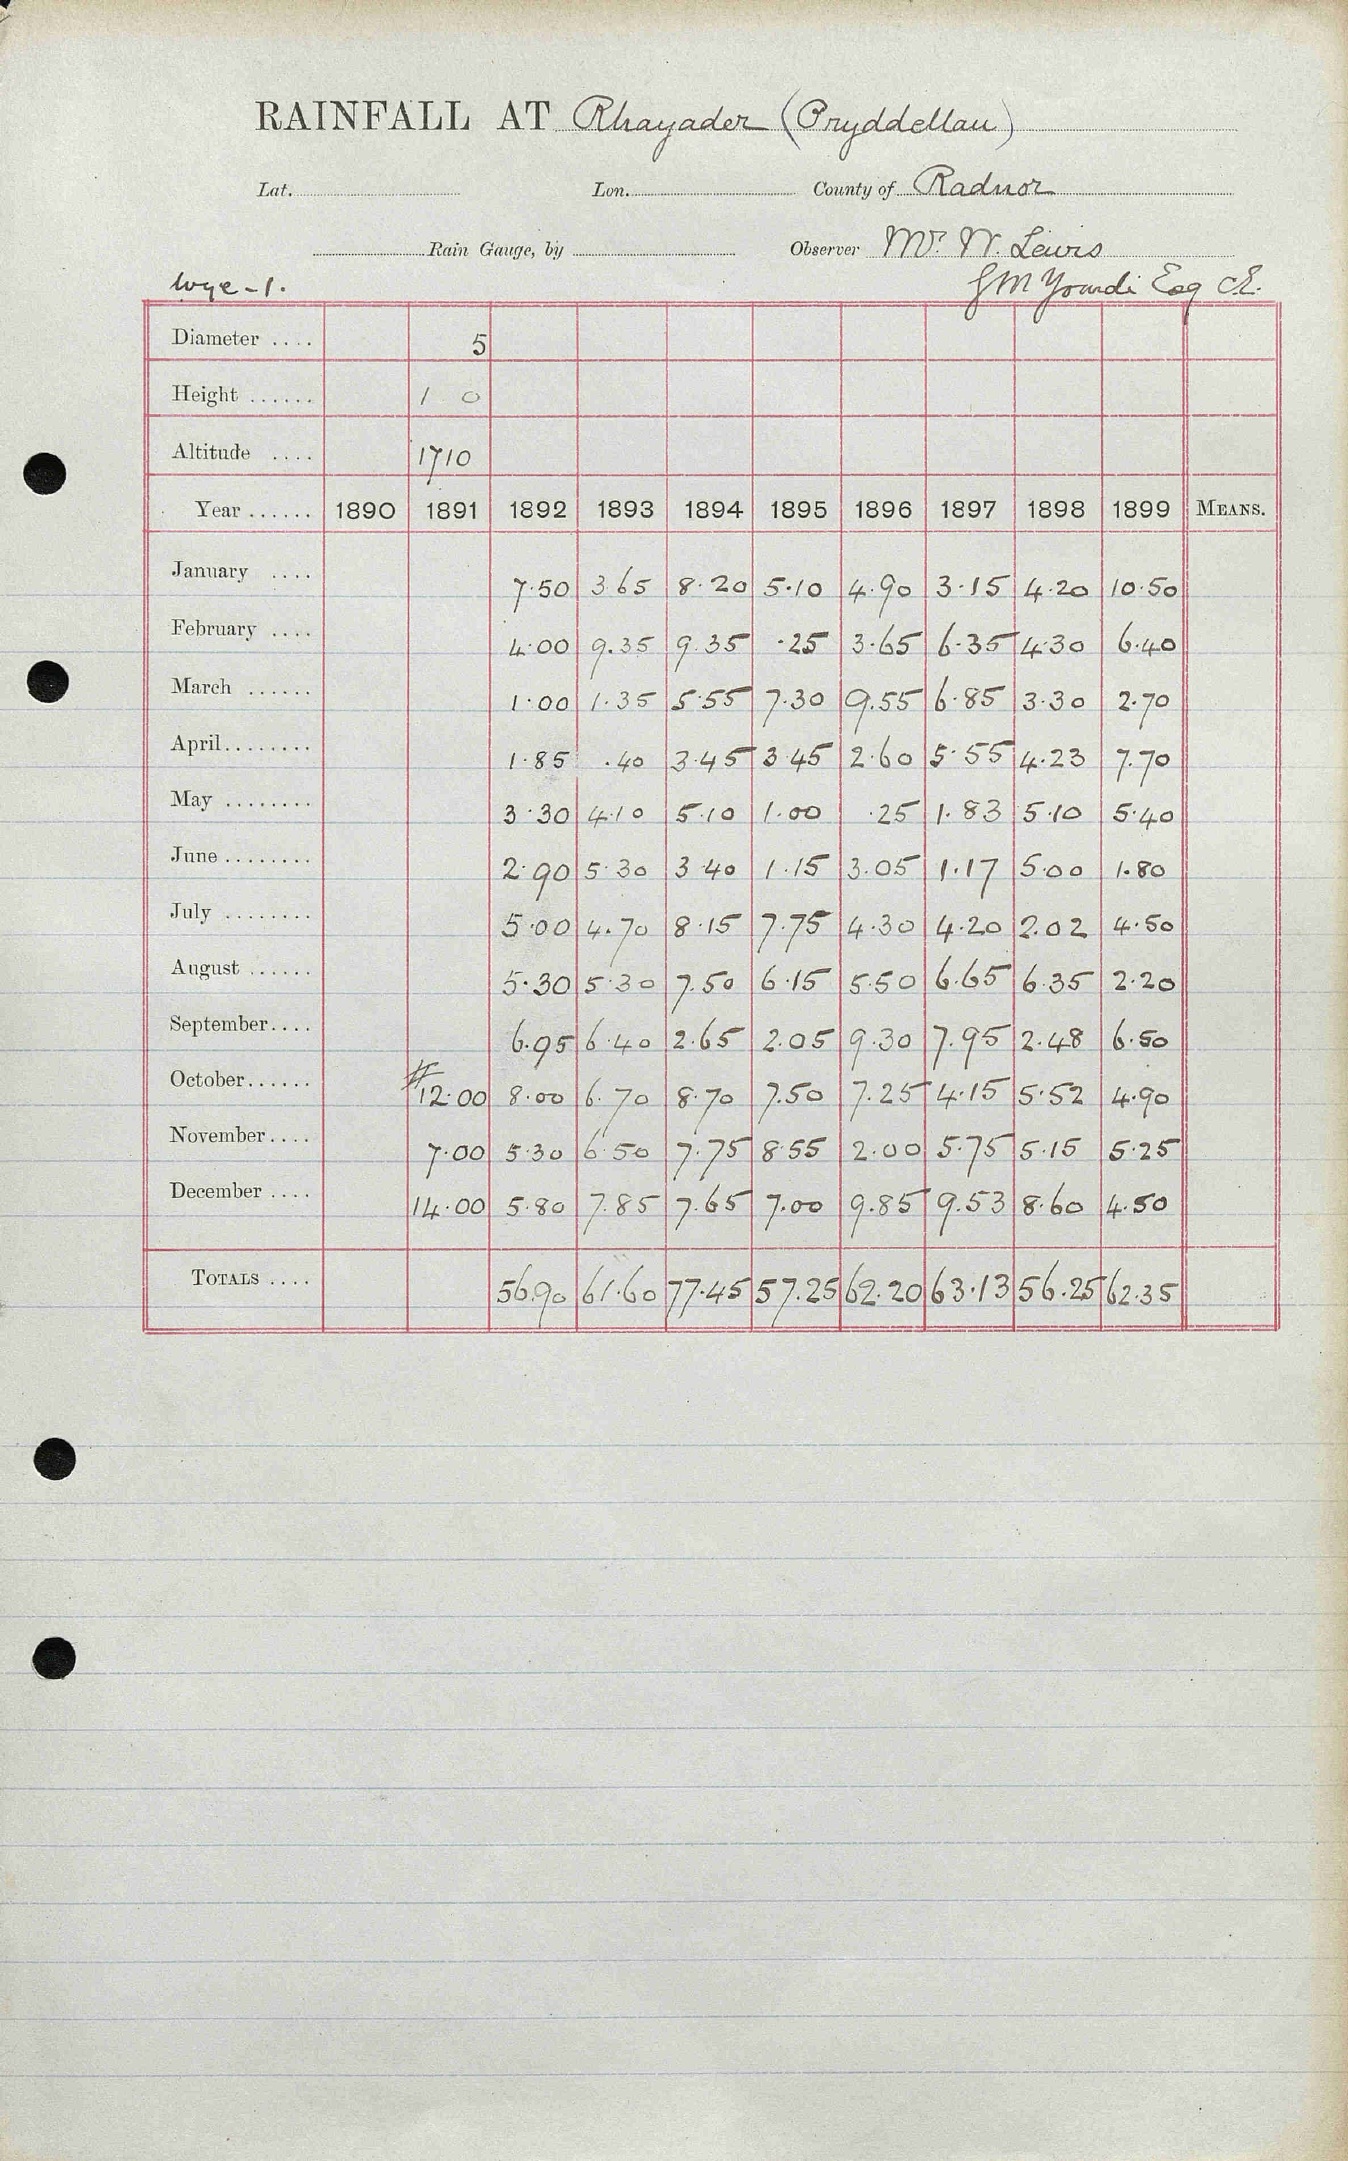 RAINFALL AT Rhayader (Pryddellau)
Lat. Lon. County of Radnor
Rain Gauge, by Observer Mr. W. Lewis
Wye - 1. G M Yourdi Esq CE.
Diameter .... 5
Height ...... 1 0
Altitude .... 1710
Year ...... 1890 1891 1892 1893 1894 1895 1896 1897 1898 1899 MEANS.
January .... 7.50 3.65 8.20 5.10 4.90 3.15 4.20 10.50
February .... 4.00 9.35 9.35 .25 3.65 6.35 4.30 6.40
March ...... 1.00 1.35 5.55 7.30 9.55 6.85 3.30 2.70
April........ 1.85 .40 3.45 3.45 2.60 5.55 4.23 7.70
May ........ 3.30 4.10 5.10 1.00 .25 1.83 5.10 5.40
June ........ 2.90 5.30 3.40 1.15 3.05 1.17 5.00 1.80
July ........ 5.00 4.70 8.15 7.75 4.30 4.20 2.02 4.50
August ...... 5.30 5.30 7.50 6.15 5.50 6.65 6.35 2.20
September.... 6.95 6.40 2.65 2.05 9.30 7.95 2.48 6.50
October...... # 12.00 8.00 6.70 8.70 7.50 7.25 4.15 5.52 4.90
November.... 7.00 5.30 6.50 7.75 8.55 2.00 5.75 5.15 5.25
December .... 14.00 5.80 7.85 7.65 7.00 9.85 9.53 8.60 4.50
TOTALS .... 56.90 61.60 77.45 57.25 62.20 63.13 56.25 62.35